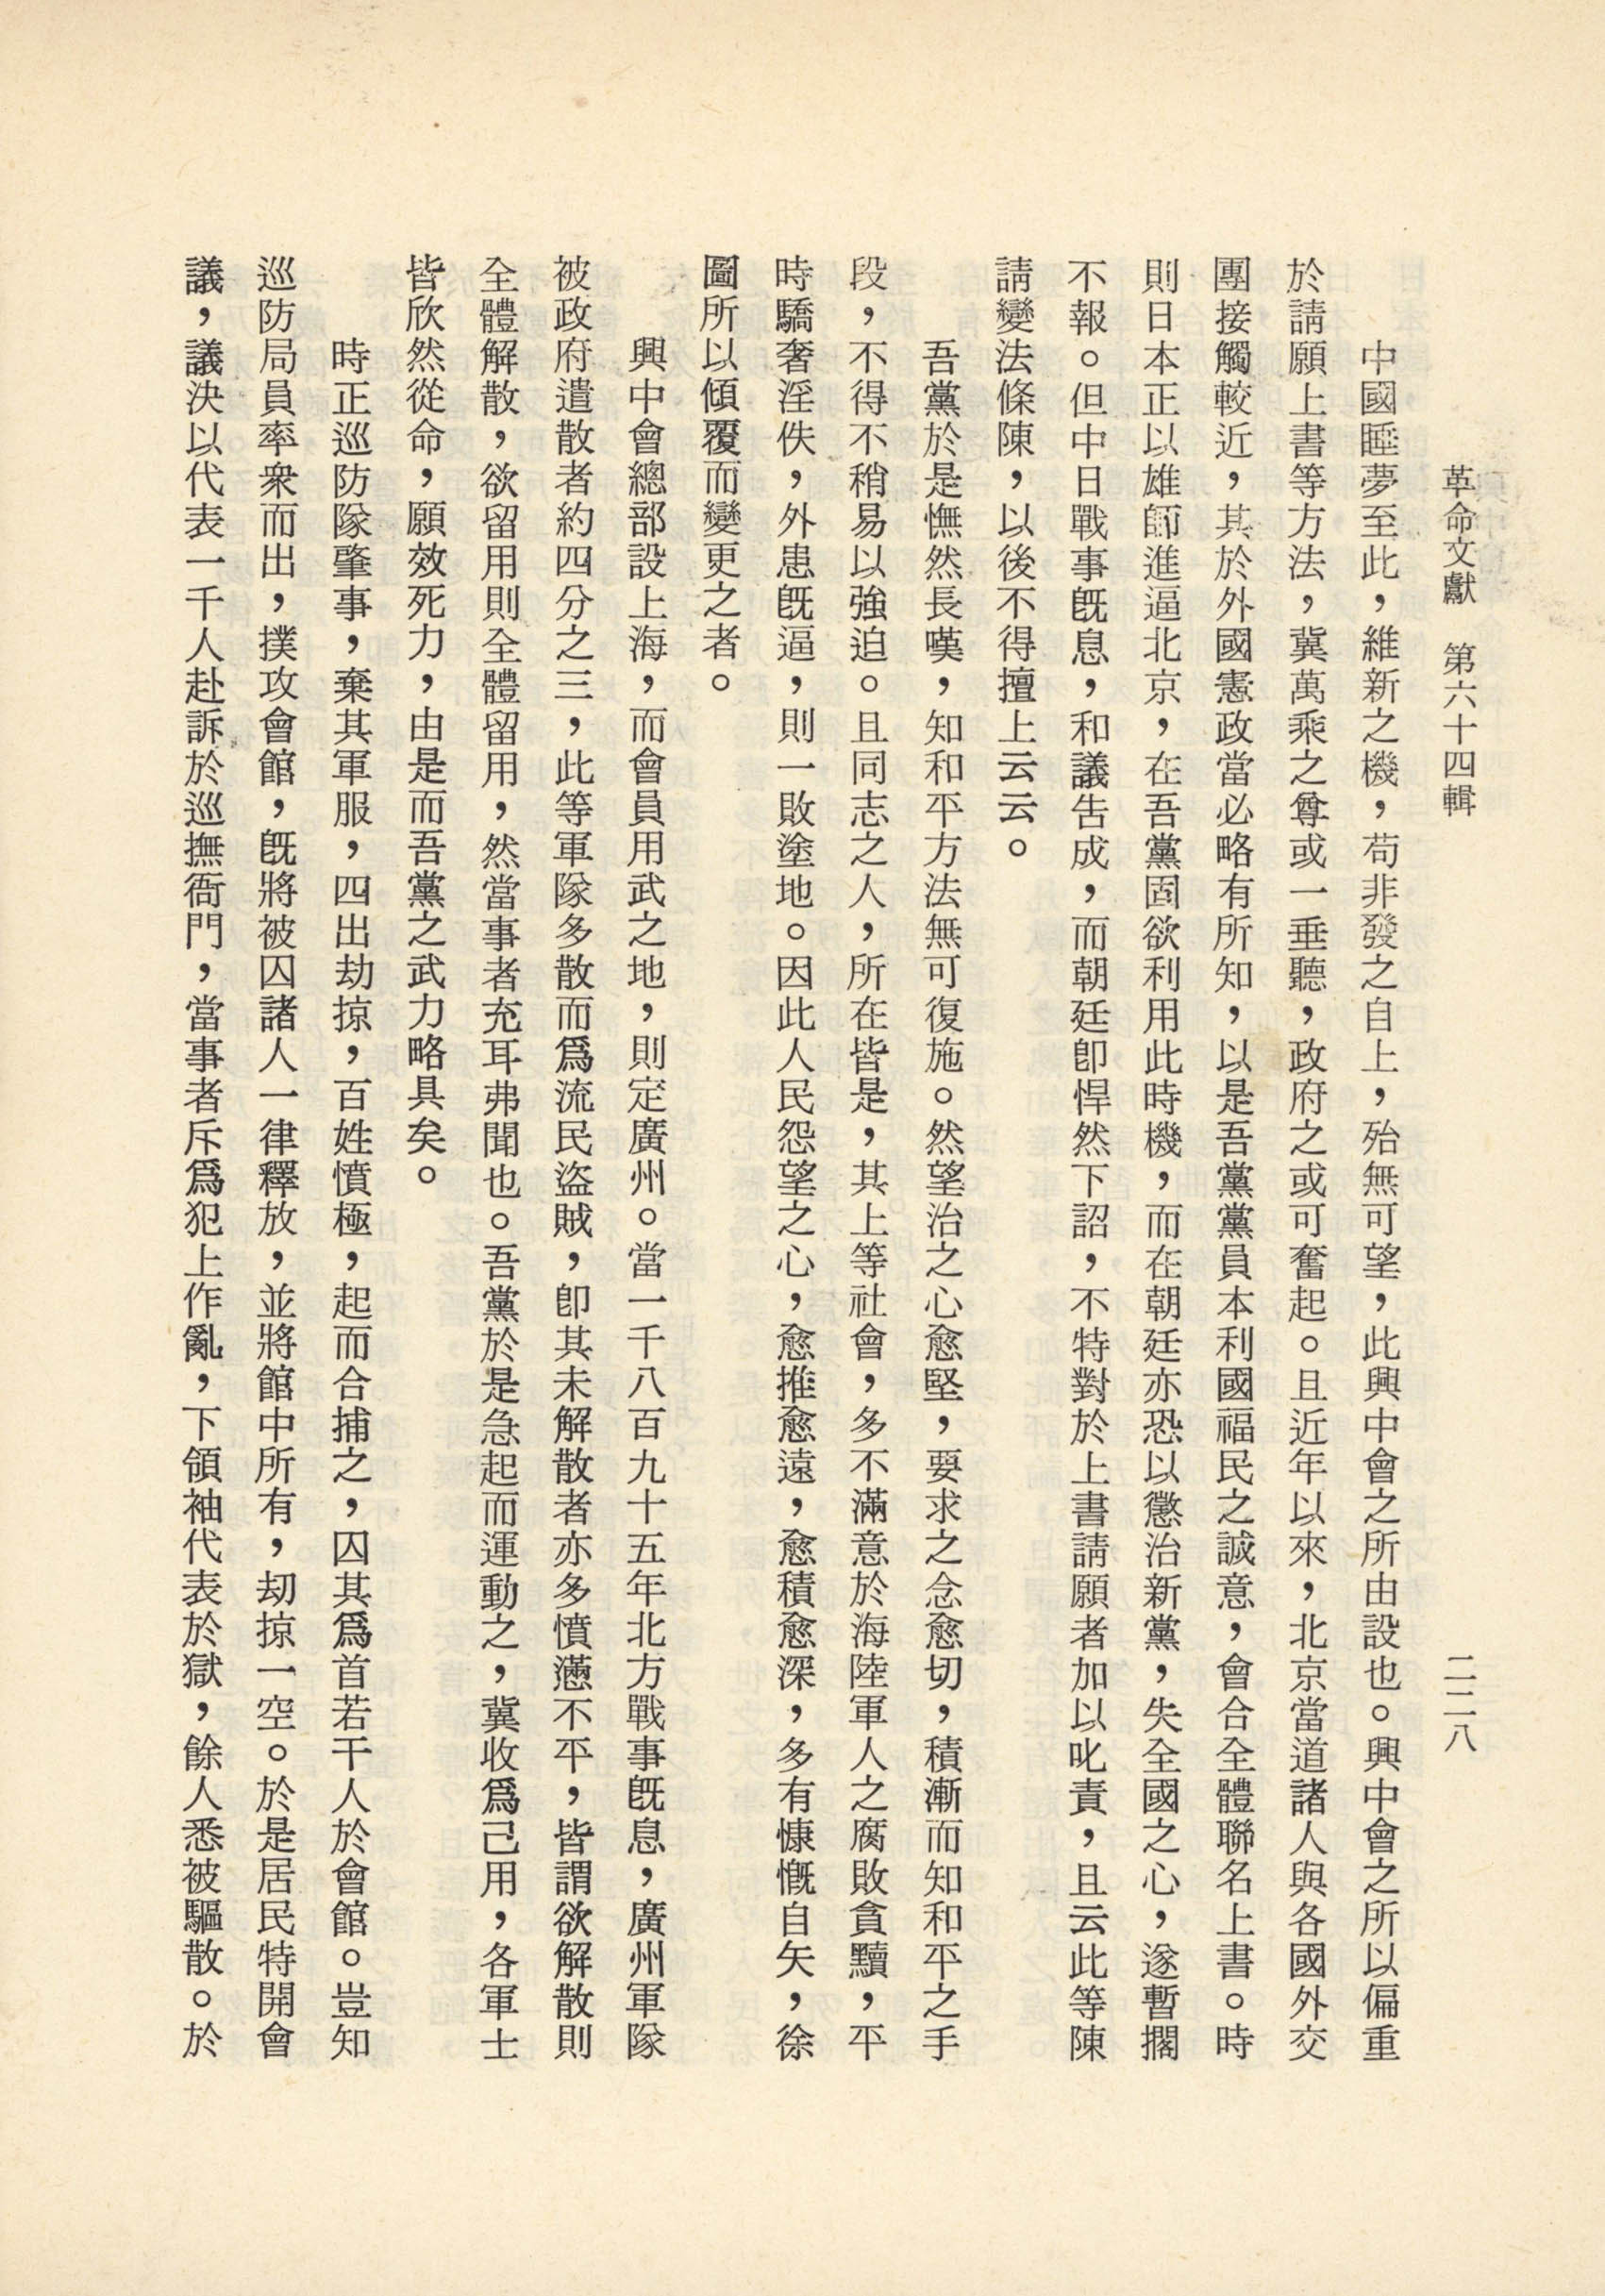 革命文獻　第六十四輯　二二八
中國睡夢至此，維新之機，苟非發之自上，殆無可望，此興中會之所由設也。興中會之所以偏重
於請願上書等方法，冀萬乘之尊或一垂聽，政府之或可奮起。且近年以來，北京當道諸人與各國外交
團接觸較近，其於外國憲政當必略有所知，以是吾黨黨員本利國福民之誠意，會合全體聯名上書。時
則日本正以雄師進逼北京，在吾黨固欲利用此時機，而在朝廷亦恐以懲治新黨，失全國之心，遂暫擱
不報。但中日戰事旣息，和議告成，而朝廷卽悍然下詔，不特對於上書請願者加以叱責，且云此等陳
請變法條陳，以後不得擅上云云。
吾黨於是憮然長嘆，知和平方法無可復施。然望治之心愈堅，要求之念愈切，積漸而知和平之手
段，不得不稍易以強迫。且同志之人，所在皆是，其上等社會，多不滿意於海陸軍人之腐敗貪黷，平
時驕奢淫佚，外患旣逼，則一敗塗地。因此人民怨望之心，愈推愈遠，愈積愈深，多有慷慨自矢，徐
圖所以傾覆而變更之者。
興中會總部設上海，而會員用武之地，則定廣州。當一千八百九十五年北方戰事旣息，廣州軍隊
被政府遣散者約四分之三，此等軍隊多散而爲流民盜賊，卽其未解散者亦多憤懣不平，皆謂欲解散則
全體解散，欲留用則全體留用，然當事者充耳弗聞也。吾黨於是急起而運動之，冀收爲己用，各軍士
皆欣然從命，願效死力，由是而吾黨之武力略具矣。
時正巡防隊肇事，棄其軍服，四出劫掠，百姓憤極，起而合捕之，囚其爲首若干人於會館。豈知
巡防局員率衆而出，撲攻會館，旣將被囚諸人一律釋放，並將館中所有，刧掠一空。於是居民特開會
議，議決以代表一千人赴訴於巡撫衙門，當事者斥爲犯上作亂，下領袖代表於獄，餘人悉被驅散。於